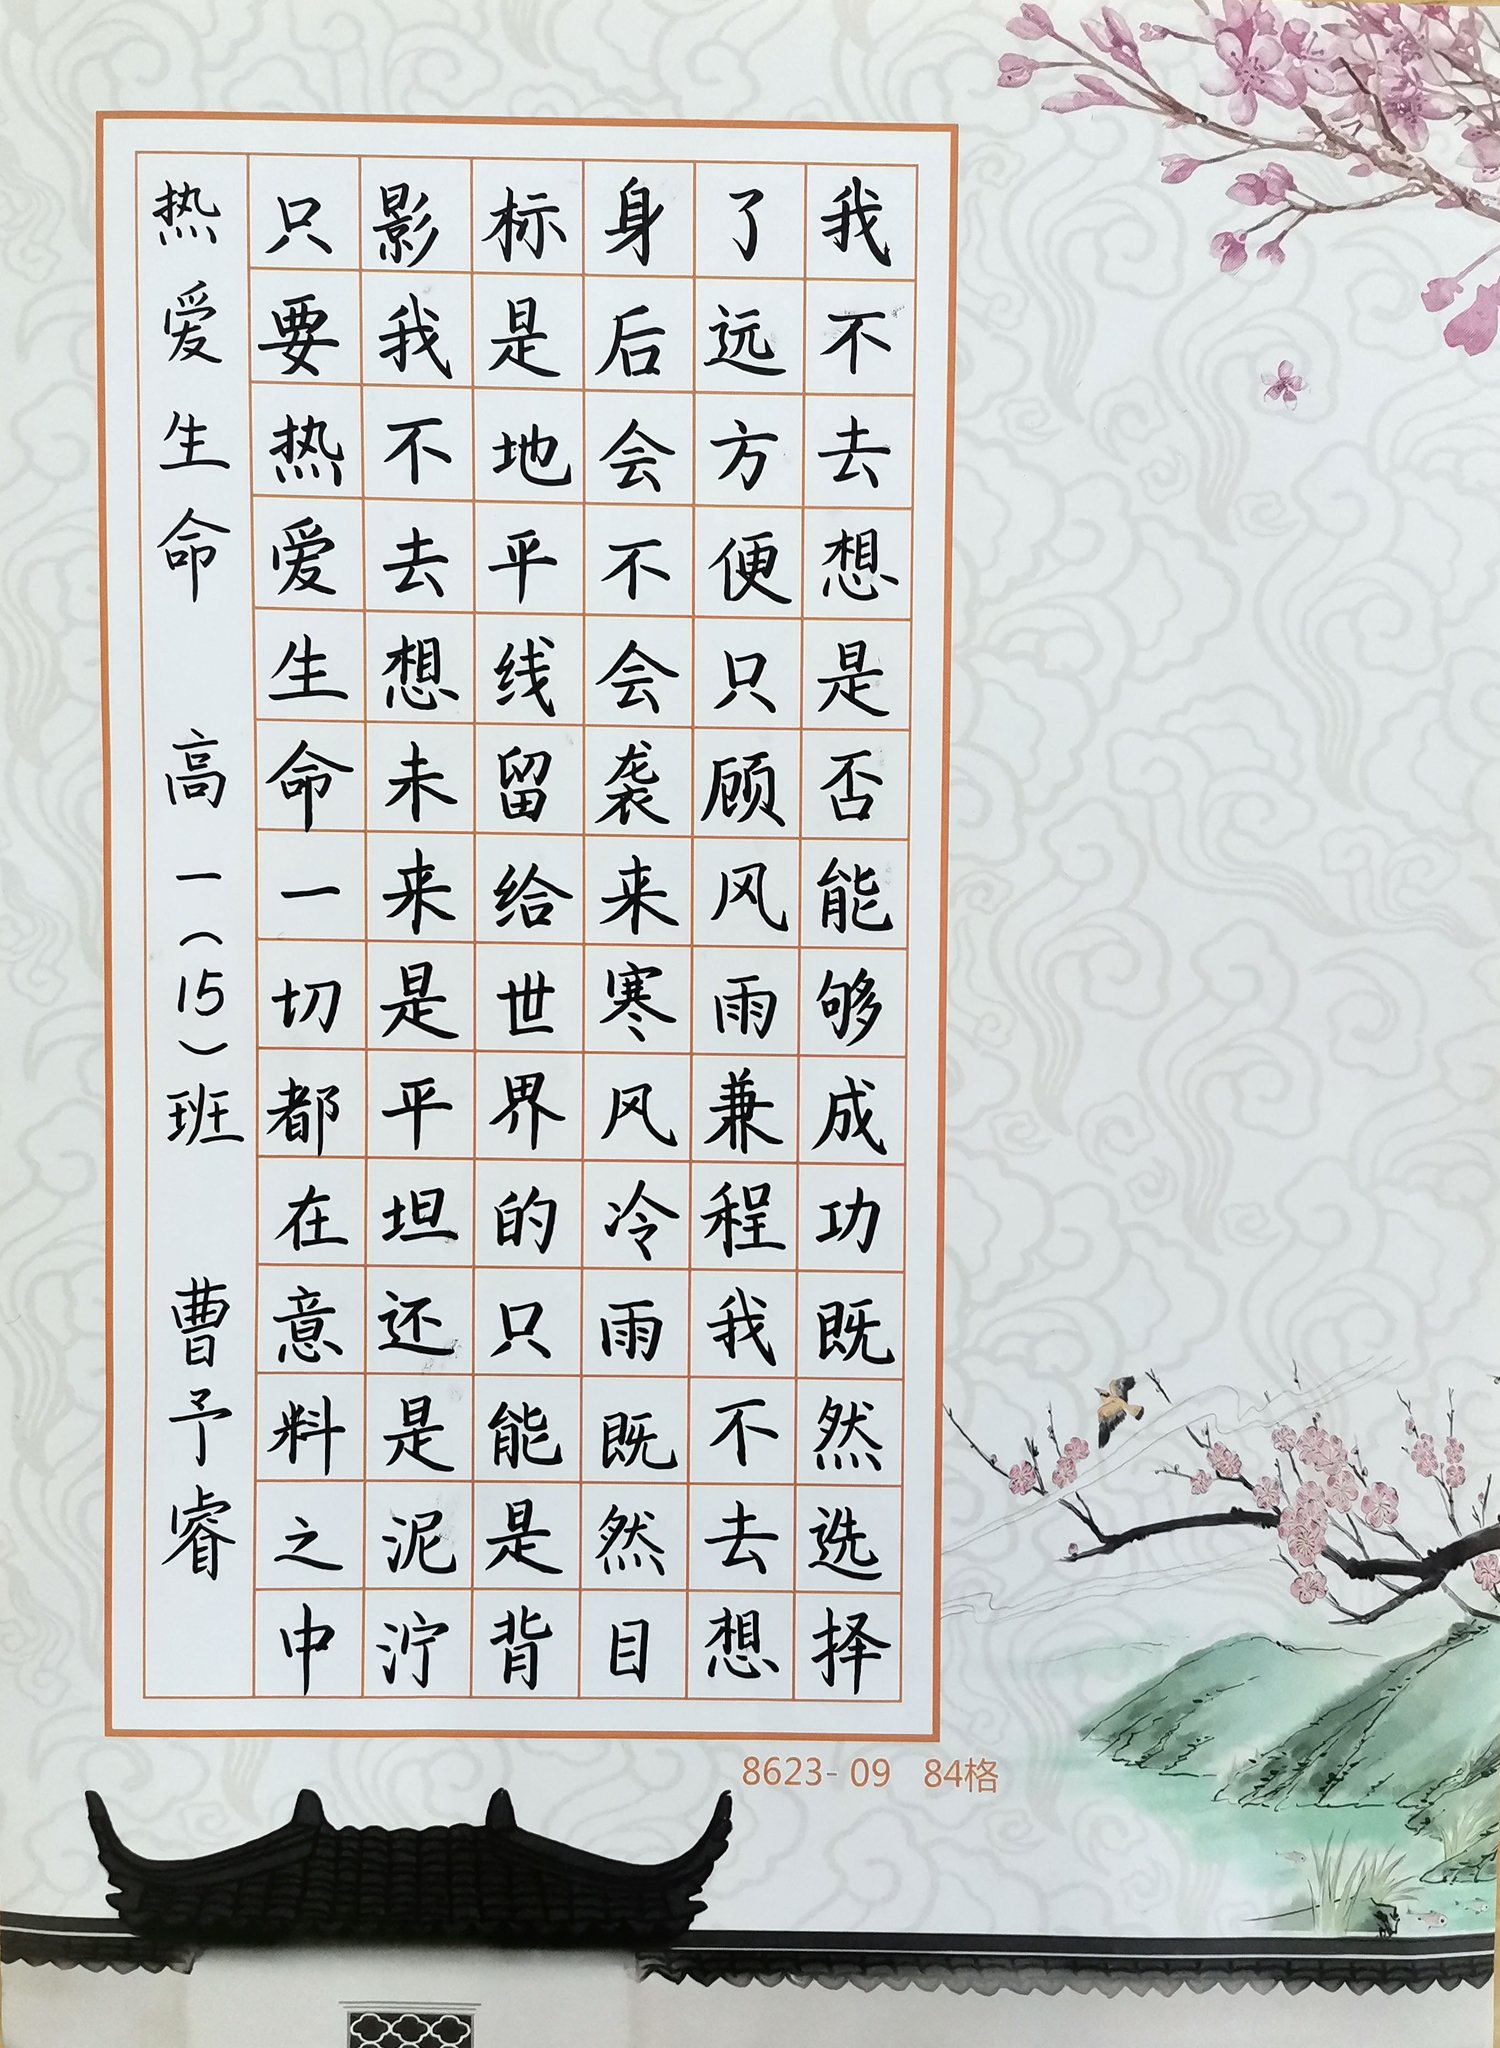 我不去想是否能够成功既然选择
了远方便只顾风雨兼程我不去想
身后会不会袭来寒风冷雨既然目
标是地平线留给世界的只能是背
影我不去想未来是平坦还是泥泞
只要热爱生命一切都在意料之中
热爱生命 高一(15)班 曹予睿
8623-09 84格